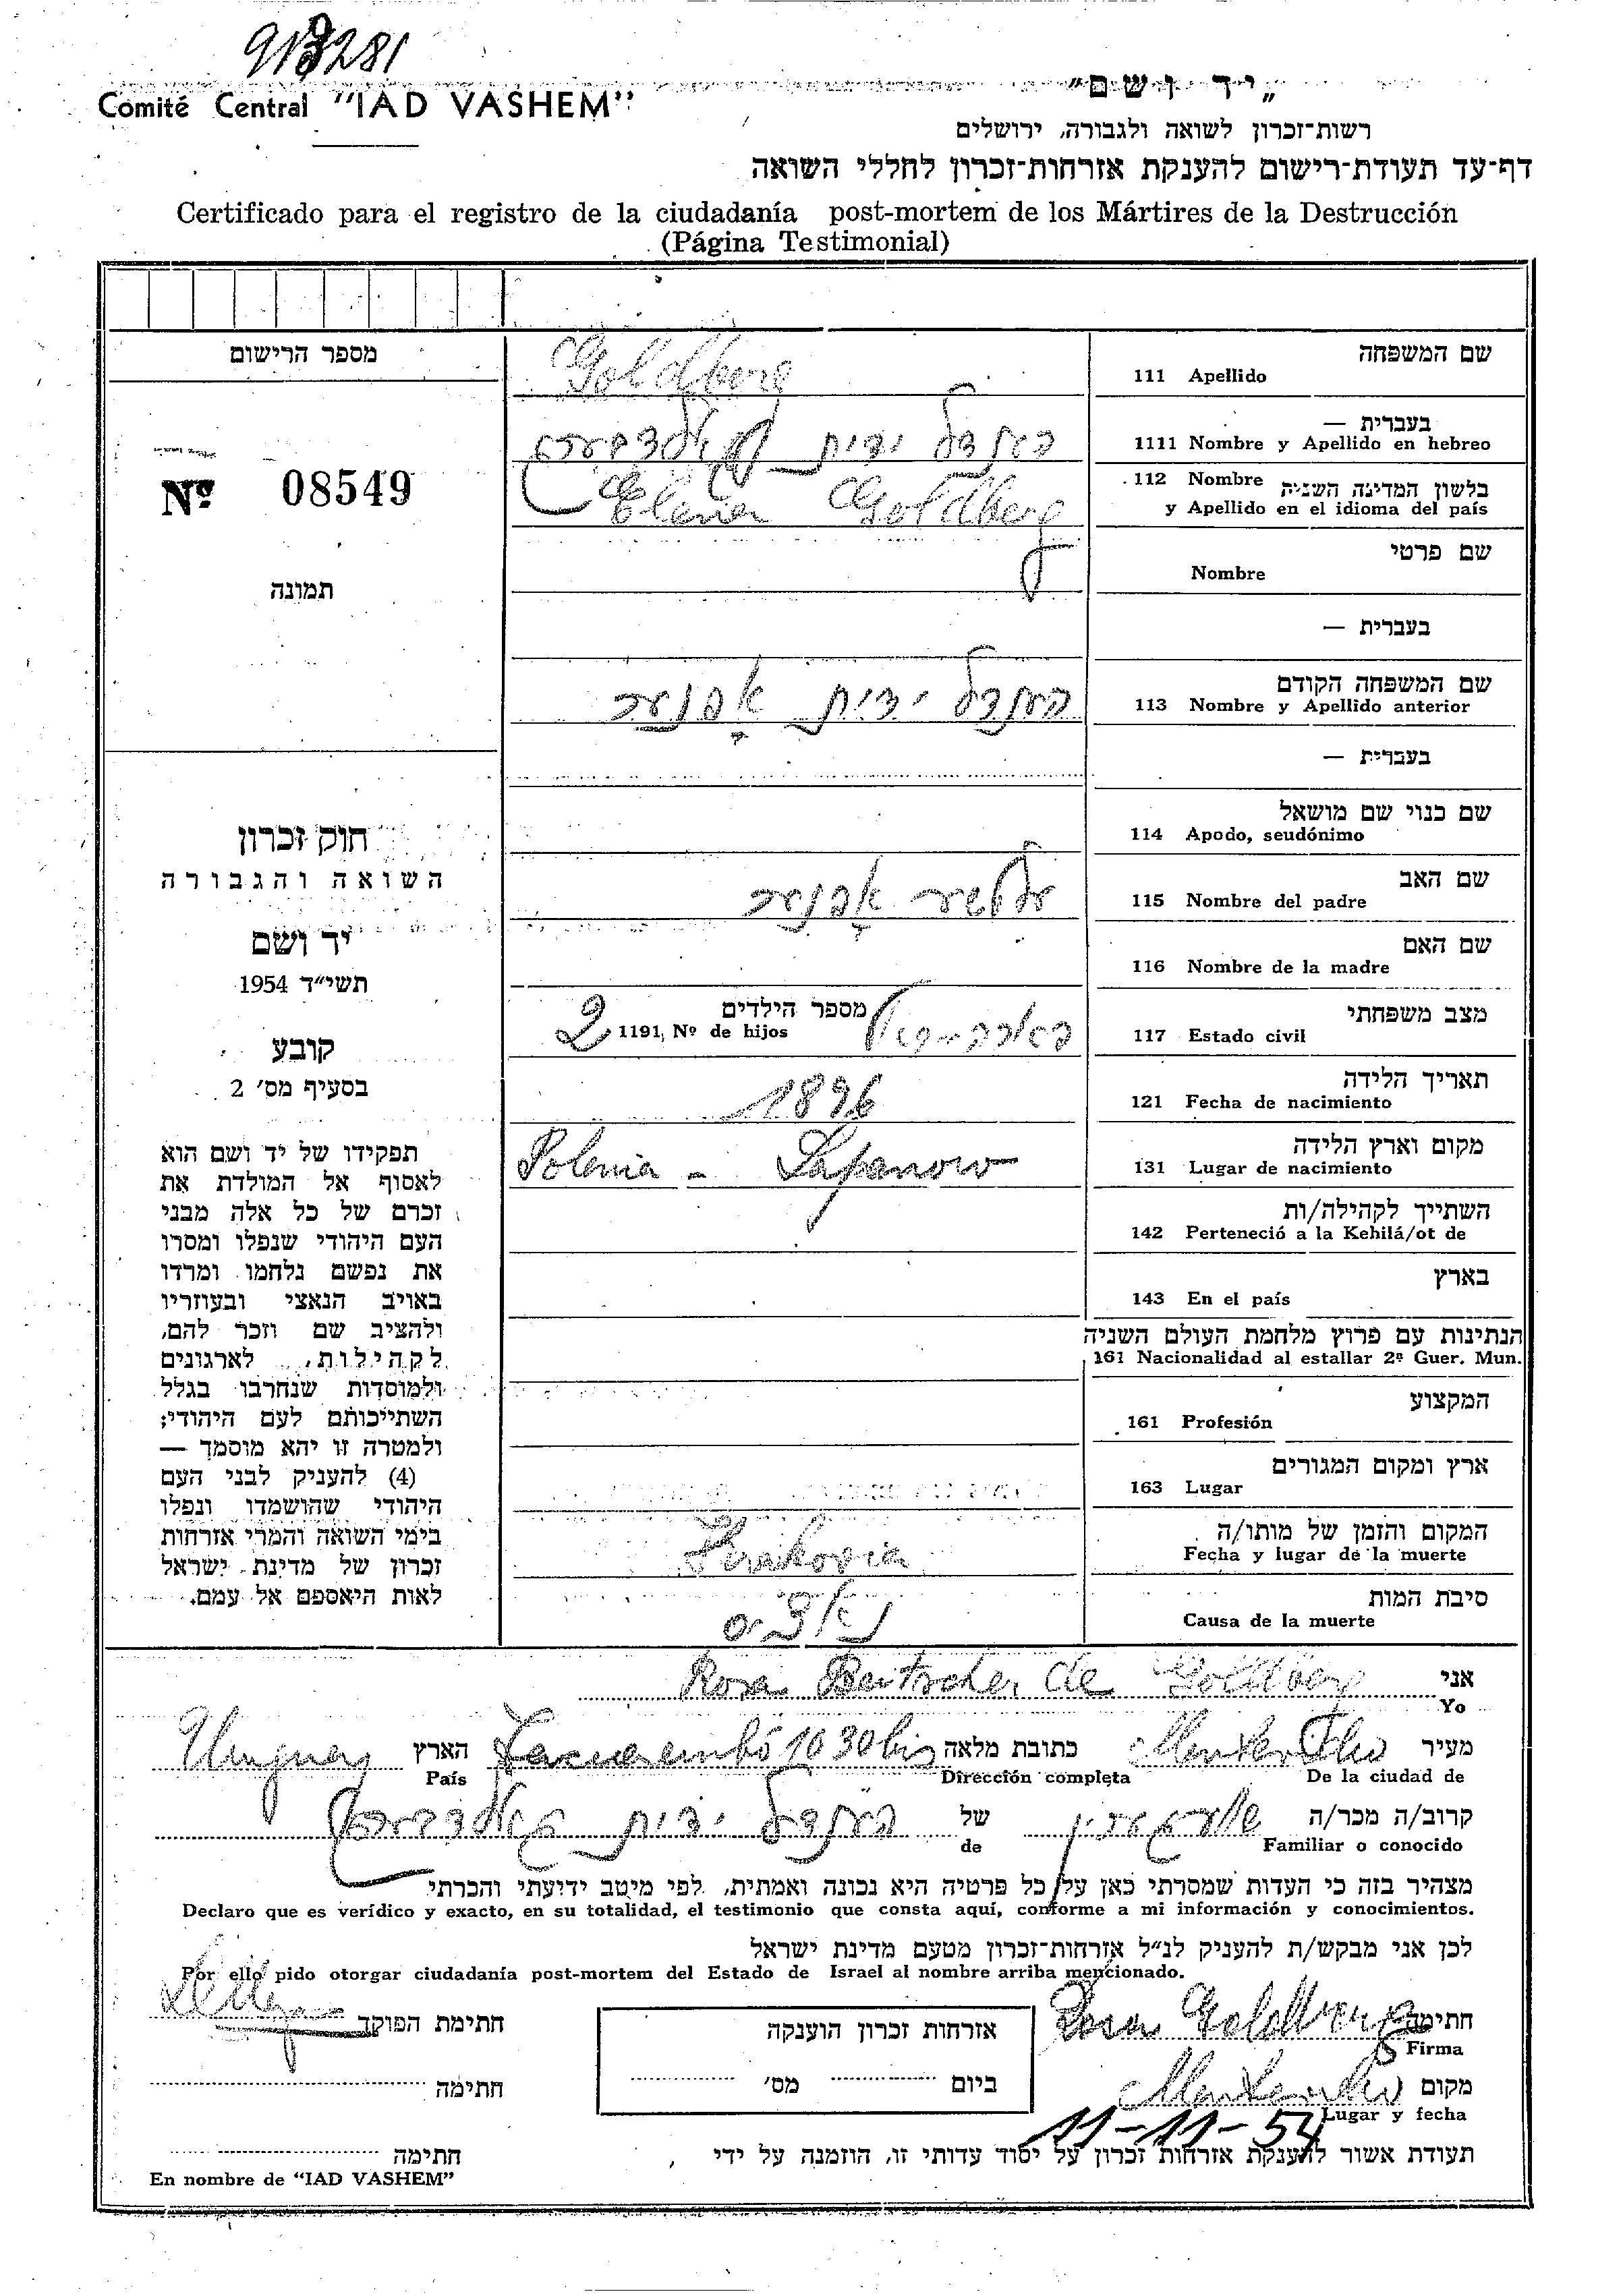 913281
Comité Central "IAD VASHEM"
„יד ושם"
רשות־זכרון לשואה ולגבורה, ירושלים
דף־עד תעודת־רישום להענקת אזרחות־זכרון לחללי השואה
Certificado para el registro de la ciudadanía post-mortem de los Mártires de la Destrucción
(Página Testimonial)
מספר הרישום
Nº 08549
תמונה
חוק זכרון
השואה והגבורה
יד ושם
תשי״ד 1954
קובע
בסעיף מס׳ 2
תפקידו של יד ושם הוא
לאסוף אל המולדת את
זכרם של כל אלה מבני
העם היהודי שנפלו ומסרו
את נפשם נלחמו ומרדו
באויב הנאצי ובעוזריו
ולהציב שם וזכר להם,
לקהילות, לארגונים
ולמוסדות שנחרבו בגלל
השתייכותם לעם היהודי;
ולמטרה זו יהא מוסמך —
(4) להעניק לבני העם
היהודי שהושמדו ונפלו
בימי השואה והמרי אזרחות
זכרון של מדינת ישראל
לאות היאספם אל עמם.
שם המשפחה
111 Apellido Goldberg
בעברית —
1111 Nombre y Apellido en hebreo הענדל ידית גאלדבערג
112 Nombre בלשון המדינה השניה
y Apellido en el idioma del país Elena Goldberg
שם פרטי
Nombre
בעברית —
שם המשפחה הקודם
113 Nombre y Apellido anterior הענדל ידית אפנער
בעברית —
שם כנוי שם מושאל
114 Apodo, seudónimo
שם האב
115 Nombre del padre אפנער
שם האם
116 Nombre de la madre
מצב משפחתי
117 Estado civil
מספר הילדים
1191, Nº de hijos 2
תאריך הלידה
121 Fecha de nacimiento 1896
מקום וארץ הלידה
131 Lugar de nacimiento Polonia - Lapanow
השתייך לקהילה/ות
142 Perteneció a la Kehilá/ot de
בארץ
143 En el país
הנתינות עם פרוץ מלחמת העולם השניה
161 Nacionalidad al estallar 2ª Guer. Mun.
המקצוע
161 Profesión
ארץ ומקום המגורים
163 Lugar
המקום והזמן של מותו/ה
Fecha y lugar de la muerte Krakovia
סיבת המות
Causa de la muerte
אני Rosa Beitscher de Goldberg
Yo
מעיר Montevideo כתובת מלאה Tacuarembó 1030 bis הארץ Uruguay
De la ciudad de Dirección completa País
קרוב/ה מכר/ה של הענדל ידית גאלדבערג
Familiar o conocido de
מצהיר בזה כי העדות שמסרתי כאן על כל פרטיה היא נכונה ואמתית, לפי מיטב ידיעתי והכרתי
Declaro que es verídico y exacto, en su totalidad, el testimonio que consta aquí, conforme a mi información y conocimientos.
לכן אני מבקש/ת להעניק לנ״ל אזרחות־זכרון מטעם מדינת ישראל
Por ello pido otorgar ciudadanía post-mortem del Estado de Israel al nombre arriba mencionado.
חתימה Rosa Goldberg
Firma
אזרחות זכרון הוענקה
ביום מס׳
חתימת הפוקד
חתימה
מקום Montevideo
Lugar y fecha 11-11-54
תעודת אשור להענקת אזרחות זכרון על יסוד עדותי זו, הוזמנה על ידי
חתימה
En nombre de "IAD VASHEM"